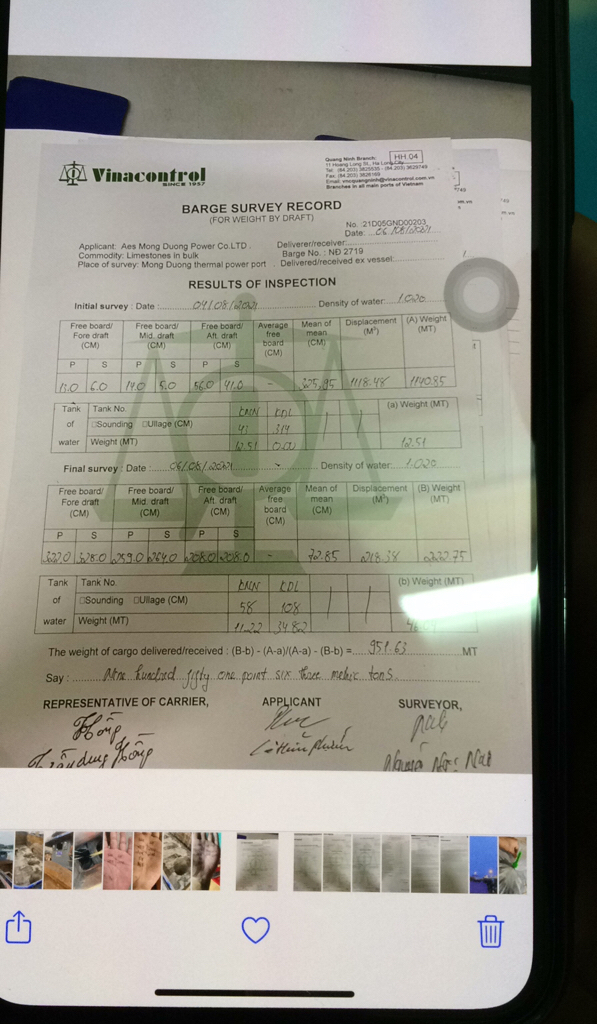 Vinacontrol
SINCE 1957
Quang Ninh Branch:
HH.04
11 Hoang Long St., Ha Long City
Tel: (84.203) 3825535 - (84.203) 3629749
Fax: (84.203) 3826169
Email: vncquangninh@vinacontrol.com.vn
Branches in all main ports of Vietnam
BARGE SURVEY RECORD
(FOR WEIGHT BY DRAFT)
No. 21D05GND00203
Date: 06/08/2021
Applicant: Aes Mong Duong Power Co.LTD .
Deliverer/receiver:
Commodity: Limestones In bulk
Barge No. : NĐ 2719
Place of survey: Mong Duong thermal power port
Delivered/received ex vessel:
RESULTS OF INSPECTION
Initial survey : Date : 04/08/2021 Density of water: 1.020
Free board/ Fore draft (CM) Free board/ Mid. draft (CM) Free board/ Aft. draft (CM) Average free board (CM) Mean of mean (CM) Displacement (M³) (A) Weight (MT)
P S P S P S
6.0 14.0 5.0 56.0 41.0 - 325.85 1118.48 1140.85
Tank of water
Tank No. KMN KDL (a) Weight (MT)
□Sounding □Ullage (CM) 314
Weight (MT) 12.51 0.00 12.51
Final survey : Date : 06/08/2021 Density of water: 1.020
Free board/ Fore draft (CM) Free board/ Mid. draft (CM) Free board/ Aft. draft (CM) Average free board (CM) Mean of mean (CM) Displacement (M³) (B) Weight (MT)
P S P S P S
322.0 328.0 259.0 264.0 208.0 208.0 - 72.85 218.38 222.75
Tank of water
Tank No. KMN KDL (b) Weight (MT)
□Sounding □Ullage (CM) 58 108
Weight (MT) 11.22 34.82
The weight of cargo delivered/received : (B-b) - (A-a)/(A-a) - (B-b) = 951.63 MT
Say : Nine hundred fifty one point six three metric tons
REPRESENTATIVE OF CARRIER, APPLICANT SURVEYOR,
Hồng